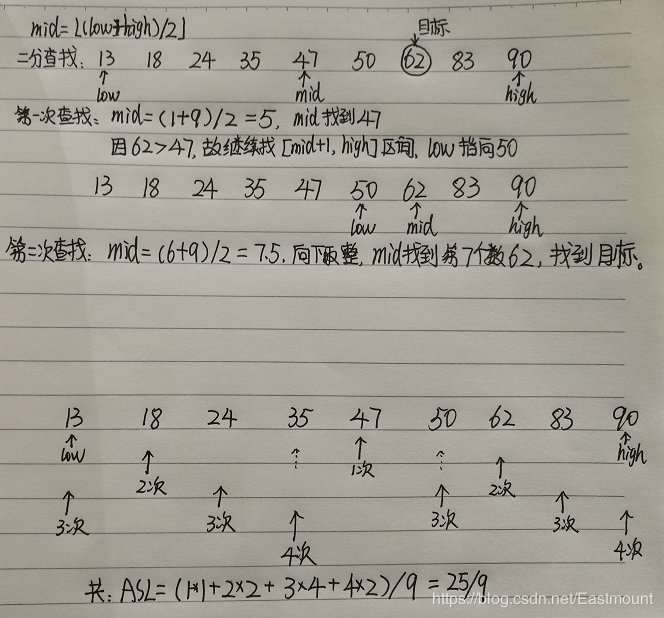 mid=⌊(low+high)/2⌋
目标
二分查找: 13 18 24 35 47 50 62 83 90
low mid high
第一次查找: mid=(1+9)/2=5, mid找到47
因62>47, 故继续找[mid+1, high]区间, low指向50
13 18 24 35 47 50 62 83 90
low mid high
第二次查找: mid=(6+9)/2=7.5, 向下取整, mid找到第7个数62, 找到目标。
13 18 24 35 47 50 62 83 90
low 1次 high
2次 2次
3次 3次 3次 3次
4次 4次
共: ASL=(1×1+2×2+3×4+4×2)/9=25/9
https://blog.csdn.net/Eastmount